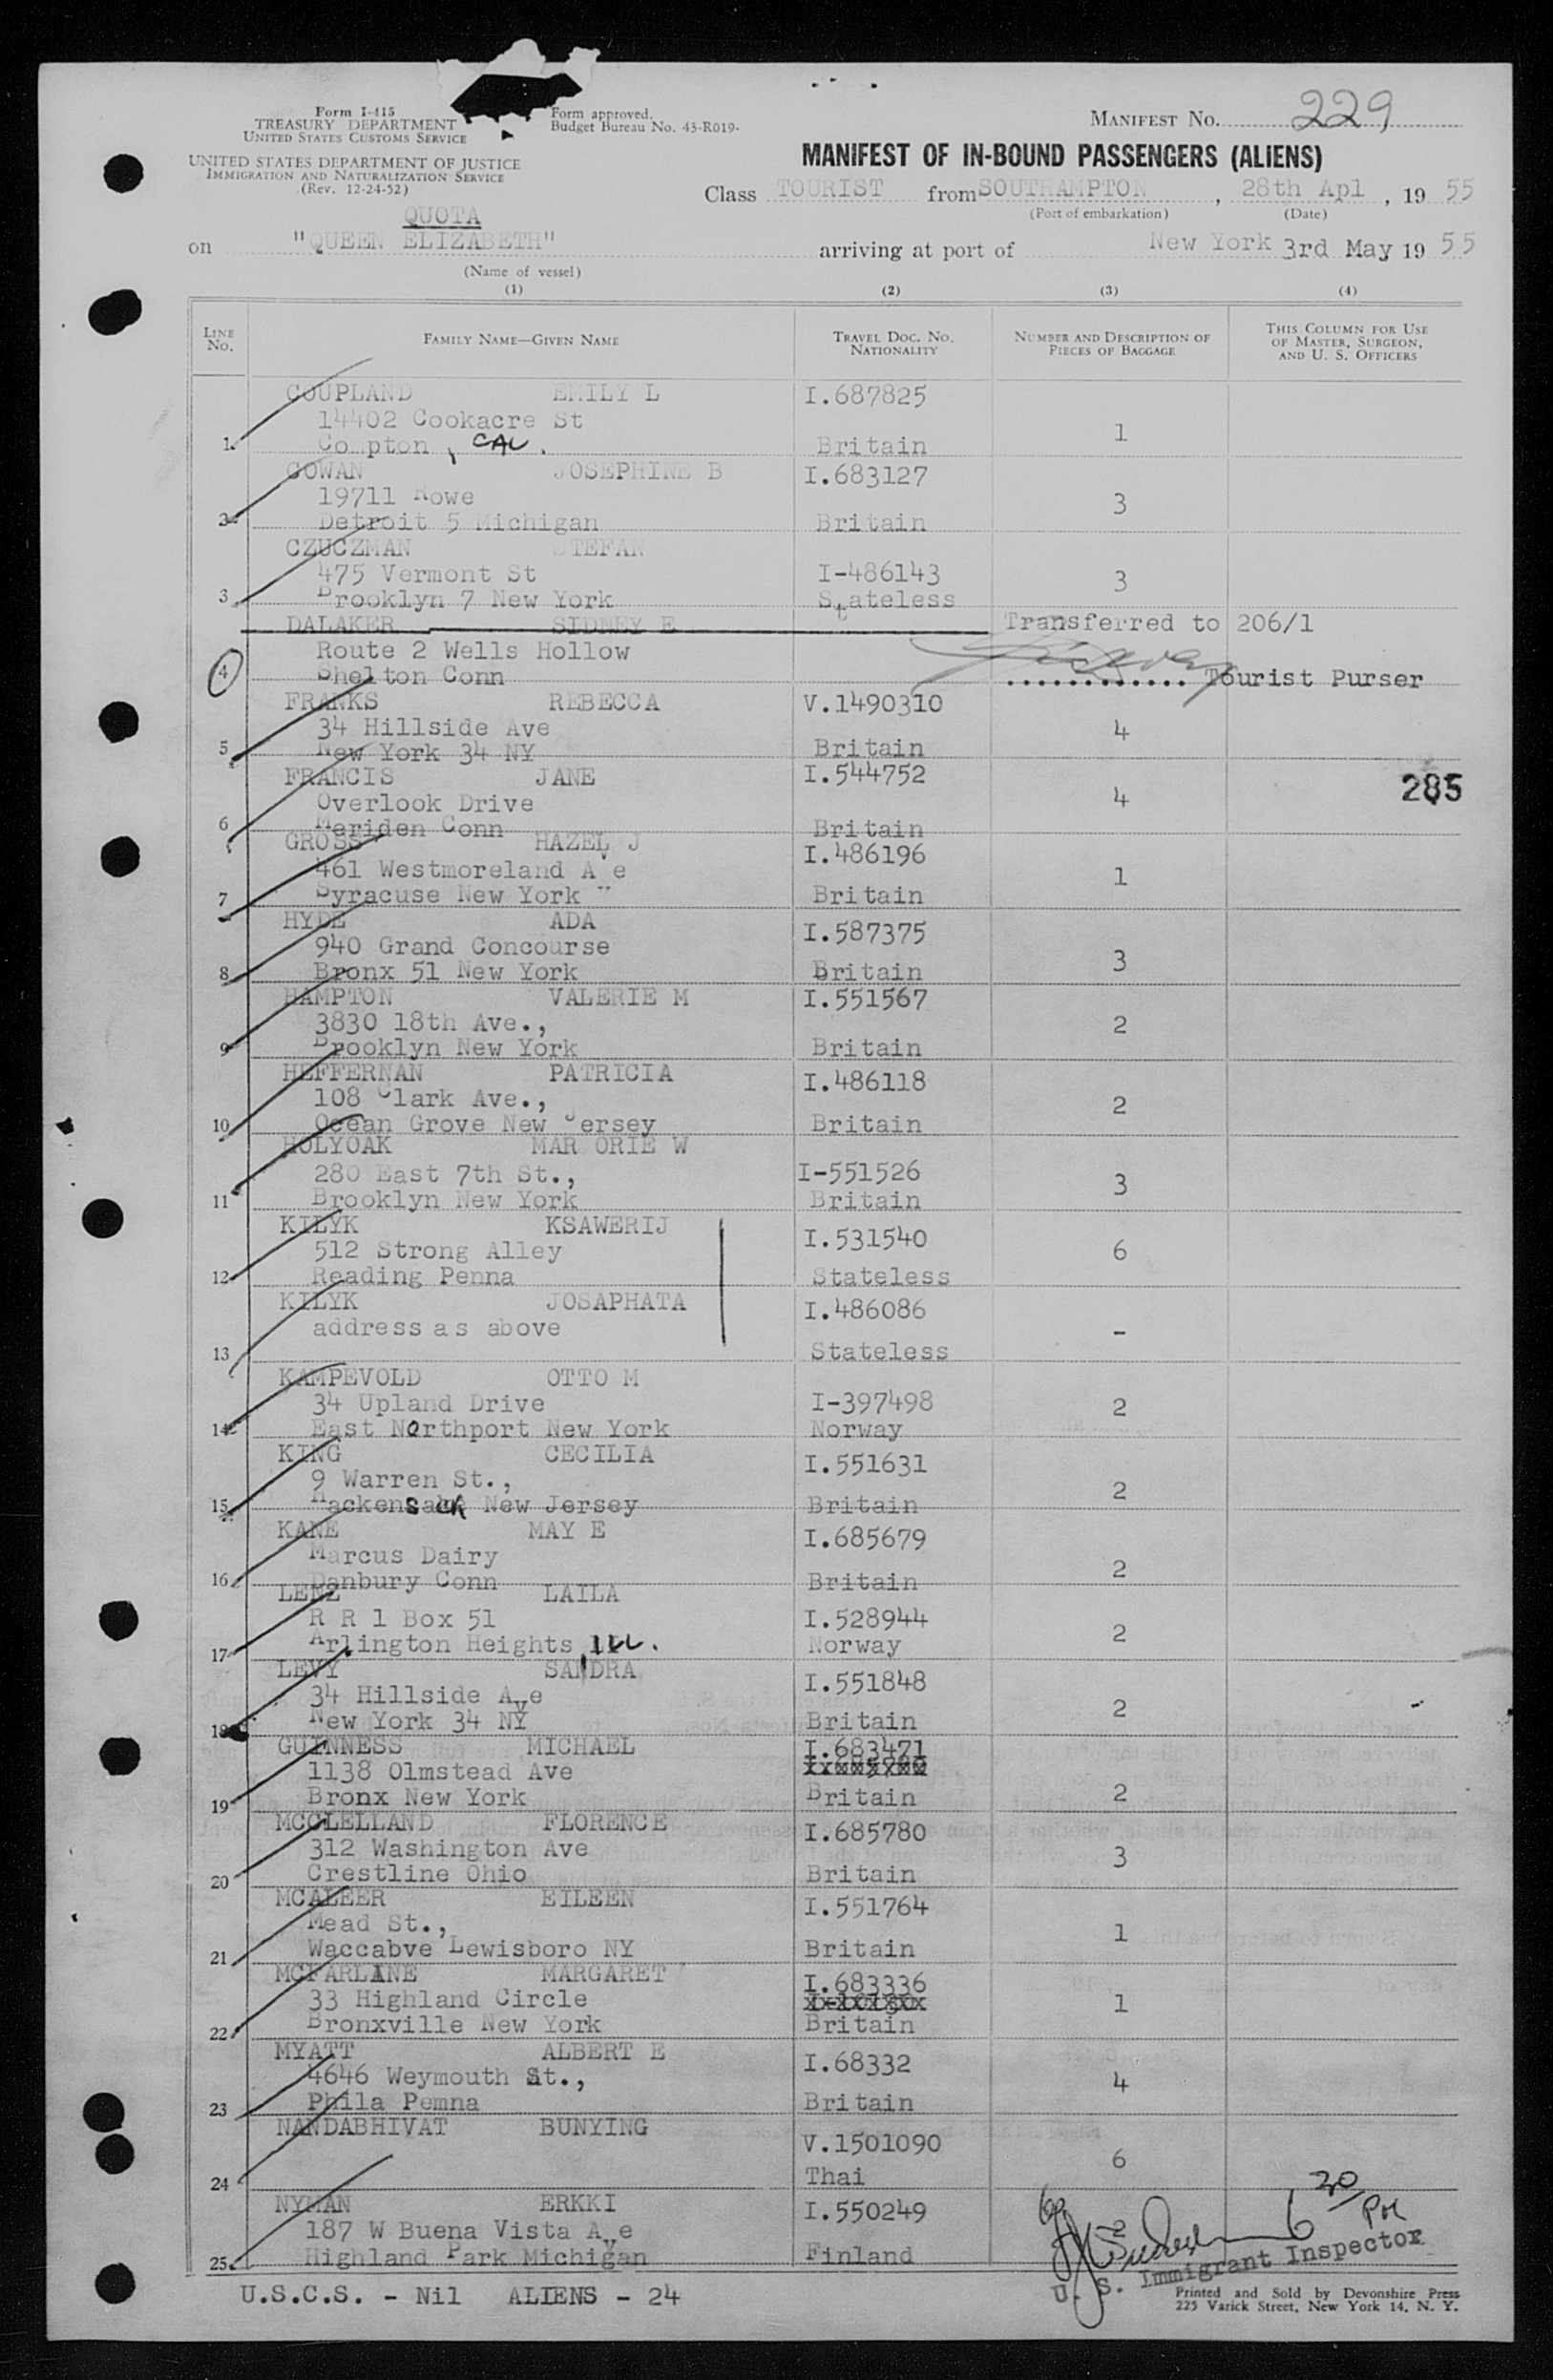 Form I-415
TREASURY DEPARTMENT
UNITED STATES CUSTOMS SERVICE
UNITED STATES DEPARTMENT OF JUSTICE
IMMIGRATION AND NATURALIZATION SERVICE
(Rev. 12-24-52)
Form approved.
Budget Bureau No. 43-R019-
MANIFEST NO. 229
MANIFEST OF IN-BOUND PASSENGERS (ALIENS)
Class TOURIST from SOUTHAMPTON, 28th Apl, 19 55
(Port of embarkation) (Date)
QUOTA
on "QUEEN ELIZABETH" arriving at port of New York 3rd May 19 55
(Name of vessel)
(1) (2) (3) (4)
LINE NO. FAMILY NAME—GIVEN NAME TRAVEL DOC. NO. NATIONALITY NUMBER AND DESCRIPTION OF PIECES OF BAGGAGE THIS COLUMN FOR USE OF MASTER, SURGEON, AND U. S. OFFICERS
COUPLAND EMILY L I.687825
14402 Cookacre St
1 Co pton, CAL. Britain 1
COWAN JOSEPHINE B I.683127
19711 Rowe
2 Detroit 5 Michigan Britain 3
CZUCZMAN STEFAN
475 Vermont St I-486143
3 Brooklyn 7 New York Stateless 3
DALAKER SIDNEY E Transferred to 206/1
Route 2 Wells Hollow
4 Shelton Conn ............ Tourist Purser
FRANKS REBECCA V.1490310
34 Hillside Ave
5 New York 34 NY Britain 4
FRANCIS JANE I.544752
285
Overlook Drive
6 Meriden Conn Britain 4
GROSS HAZEL J I.486196
461 Westmoreland Ave
7 Syracuse New York Britain 1
HYDE ADA I.587375
940 Grand Concourse
8 Bronx 51 New York Britain 3
HAMPTON VALERIE M I.551567
3830 18th Ave.,
9 Brooklyn New York Britain 2
HEFFERNAN PATRICIA I.486118
108 Clark Ave.,
10 Ocean Grove New Jersey Britain 2
HOLYOAK MAR ORIE W
280 East 7th St., I-551526
11 Brooklyn New York Britain 3
KILYK KSAWERIJ I.531540
512 Strong Alley
12 Reading Penna Stateless 6
KILYK JOSAPHATA I.486086
address as above
13 Stateless -
KAMPEVOLD OTTO M
34 Upland Drive I-397498
14 East Northport New York Norway 2
KING CECILIA I.551631
9 Warren St.,
15 Hackensack New Jersey Britain 2
KANE MAY E I.685679
Marcus Dairy
16 Danbury Conn Britain 2
LENZ LAILA
R R 1 Box 51 I.528944
17 Arlington Heights, ILL. Norway 2
LEVY SANDRA I.551848
34 Hillside Ave
18 New York 34 NY Britain 2
GUINNESS MICHAEL I.683471
1138 Olmstead Ave
19 Bronx New York Britain 2
MCCLELLAND FLORENCE I.685780
312 Washington Ave
20 Crestline Ohio Britain 3
MCALEER EILEEN I.551764
Mead St.,
21 Waccabve Lewisboro NY Britain 1
MCFARLANE MARGARET I.683336
33 Highland Circle
22 Bronxville New York Britain 1
MYATT ALBERT E I.68332
4646 Weymouth St.,
23 Phila Pemna Britain 4
NANDABHIVAT BUNYING V.1501090
24 Thai 6
NYMAN ERKKI I.550249
187 W Buena Vista Ave 2
25 Highland Park Michigan Finland
6 30/PM
U. S. Immigrant Inspector
U.S.C.S. - Nil ALIENS - 24
Printed and Sold by Devonshire Press
225 Varick Street, New York 14, N. Y.